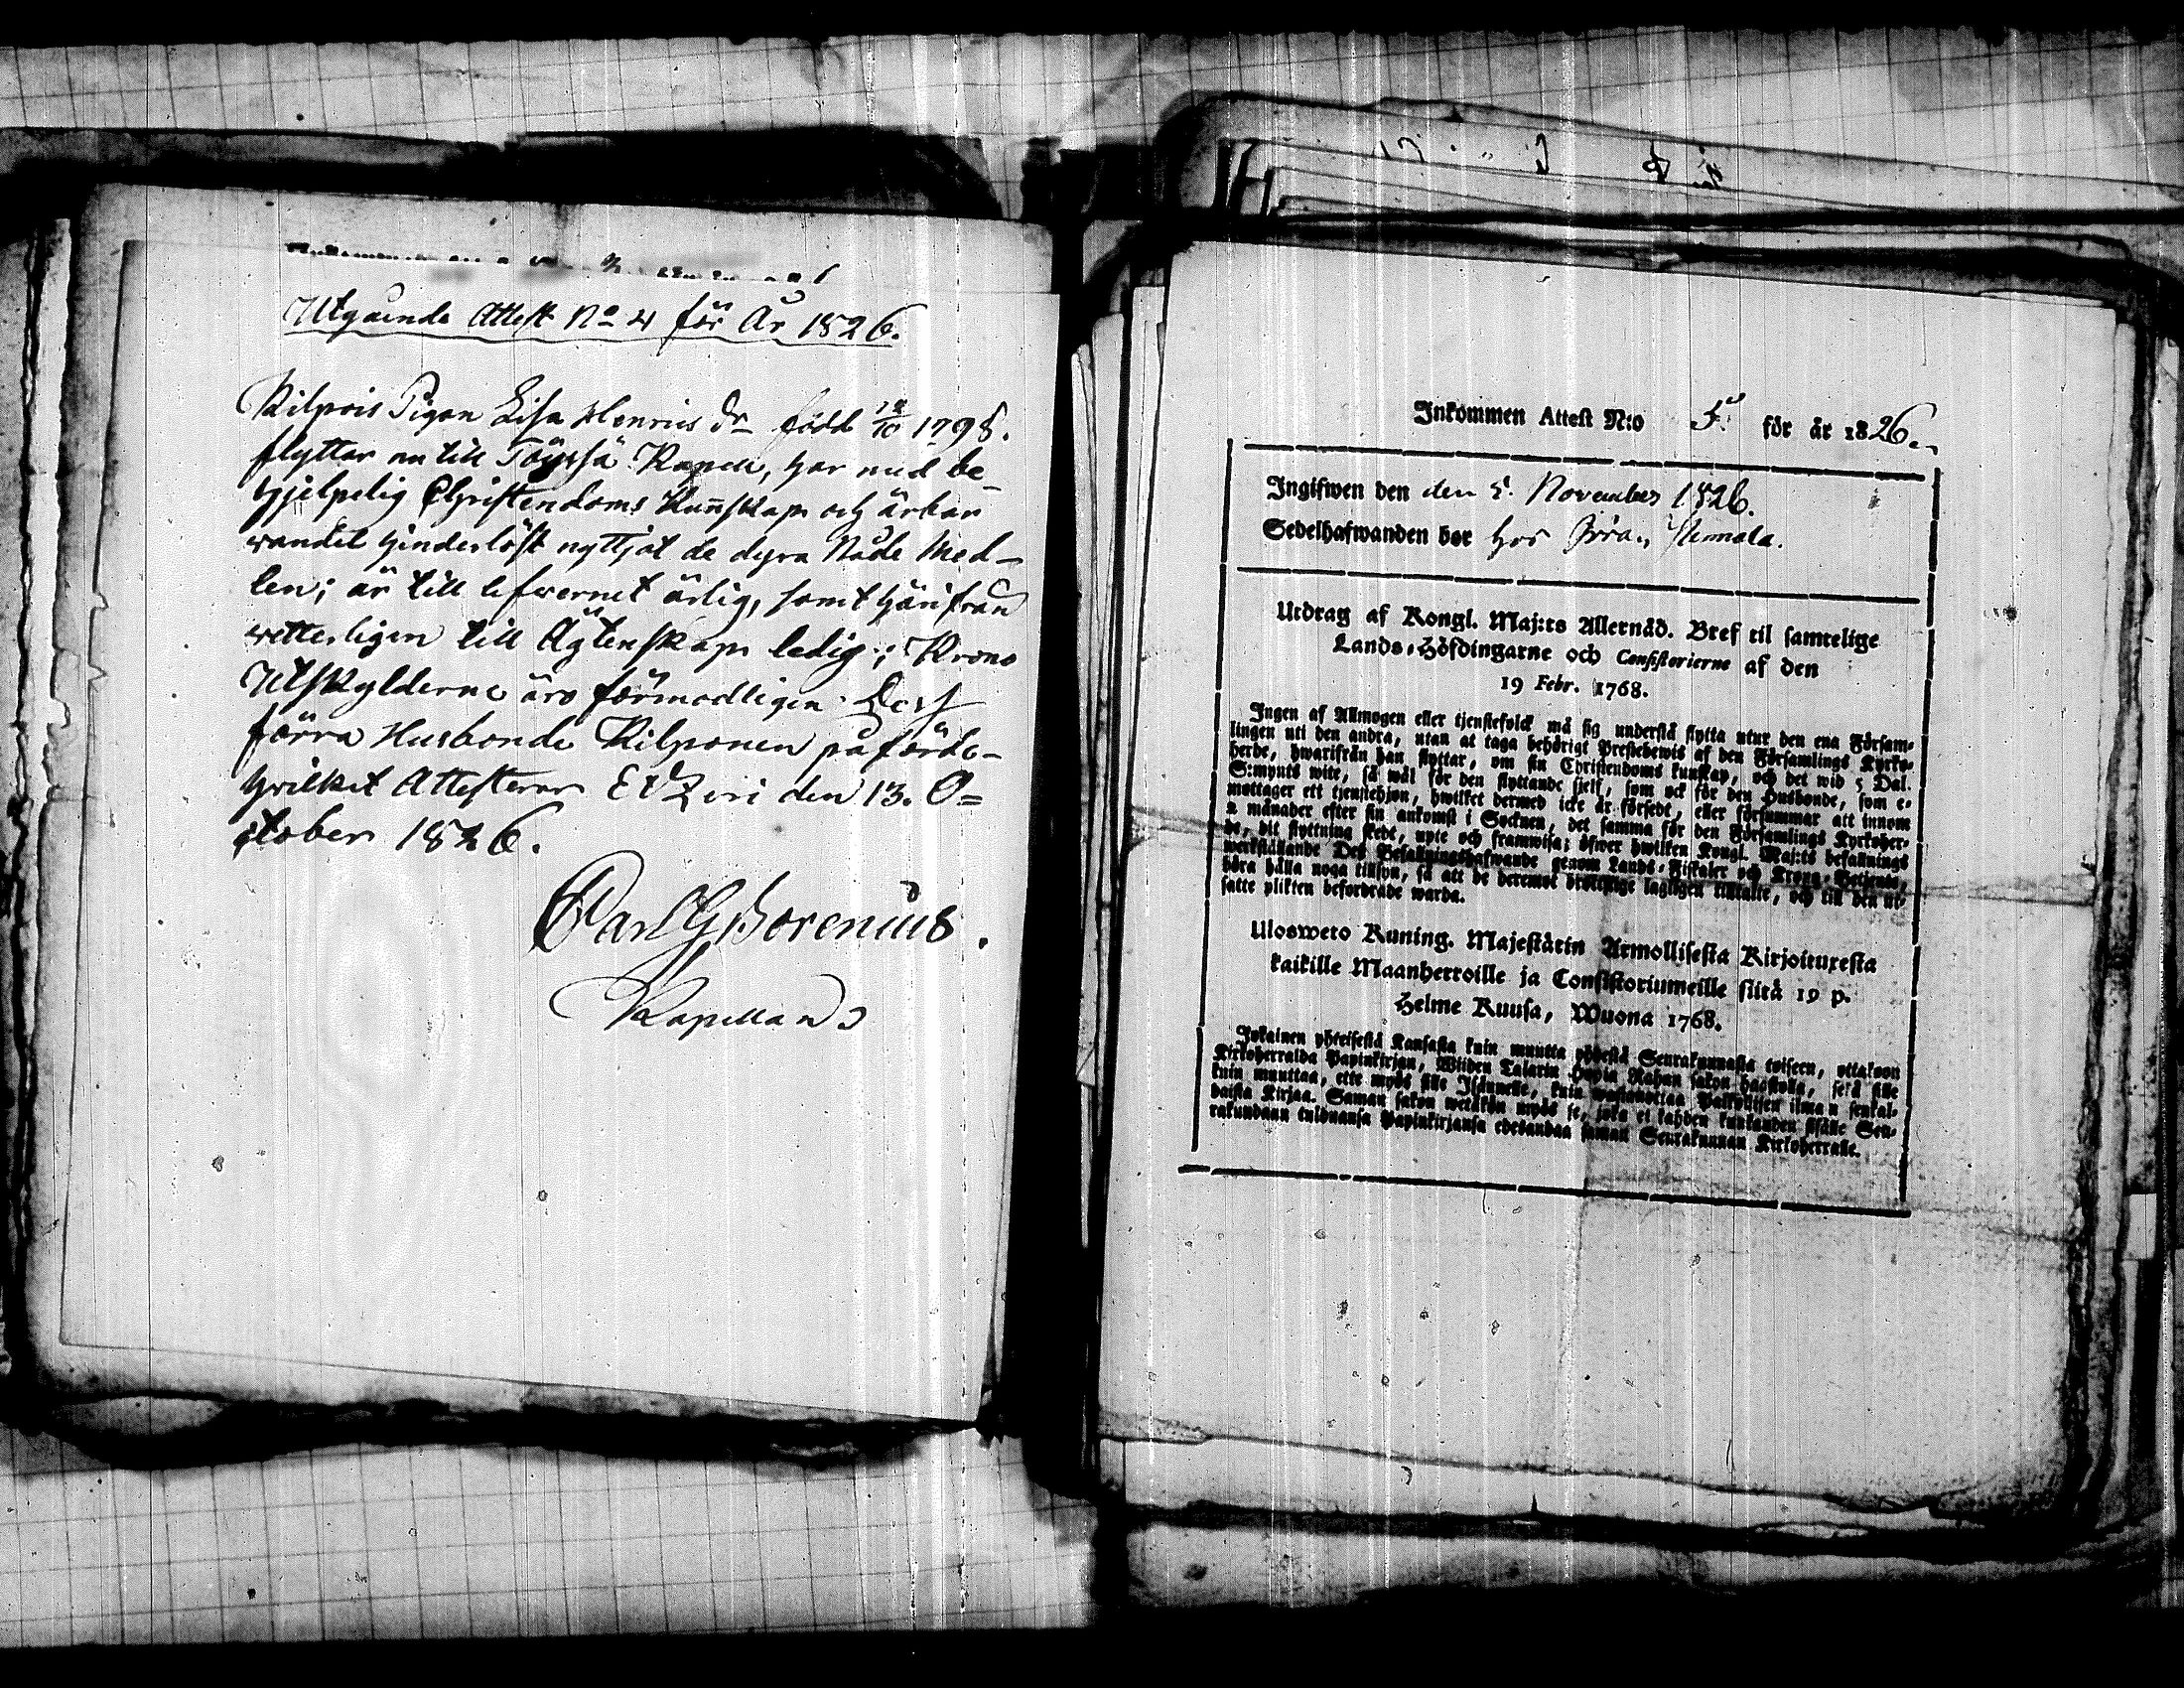 Utgående Attest No 4 för År 1826.
Kilpois Pigan Lisa Henrics dr född 18/10 1798.
flyttar nu till Töyssä Kapell, har med be-
hjelpelig Christendoms Kunskap och ärbar
vandel hinderlöst nyttjat de dyra Nåde Med-
len; är till lefwernet ärlig, samt härifrån
vetterligen till Ägtenskap ledig; Krono
Utskylderne äro förmodligen Dess
förra Husbonde Kilponen påförde-
hvilket Attesterar Etzeri den 13. O=
ctober 1826.
Carl G Borenius.
Kapellan
Inkommen Attest N:o 5. för år 1826.
Ingifwen den den 5. November 1826.
Sedelhafwanden bor hos
Utdrag af Kongl. Maj:ts Allernåd. Bref til samtelige
Lands-Höfdingarne och Consistorierne af den
19 Febr. 1768.
Ingen af Allmogen eller tjenstefolck må sig understå flytta utur den ena Försam-
lingen uti den andra, utan at taga behörigt Prestebewis af den Församlings Kyrko-
herde, hwarifrån han flyttar, om sin Christendoms kunskap, och det wid 5 Dal.
S:mynts wite, så wäl för den flyttande sjelf, som ock för den Husbonde, som e-
mottager ett tjenstehjon, hwilket dermed icke är försedt, eller försummar att innom
2 månader efter sin ankomst i Socknen, det samma för den Församlings Kyrkoher-
de, dit flyttning skedt, upte och framwisa; öfwer hwilken Kongl. Maj:ts befallnings
werkställande Deß Befallningshafwande genom Lands-Fiskaler och Krono-Betjente,
böra hålla noga tillsyn, så att de deremot brottslige lagligen tilltalte, och till den ut-
satte plikten befordrade warda.
Ulosweto Kuning. Majestätin Armollisesta Kirjoituxesta
kaikille Maanherroille ja Consistoriumeille siitä 19 p.
Helme Kuusa, Wuona 1768.
Jokainen yhteisestä Kansasta kuin muutta yhdestä Seurakunnasta toiseen, ottakoon
Kirkoherralda Papinkirjan, Wiiden Talarin Hopia Rahan sakon haastolla, sekä sille
kuin muuttaa, ette myös sille Isännelle, kuin wastanottaa Palkollisen ilman senkal-
daista Kirjaa. Saman sakon wetäkön myös se, joka ei kahden kuukauden sisälle Seu-
rakundaan tulduansa Papinkirjansa edesandaa saman Seurakunnan Kirkoherralle.